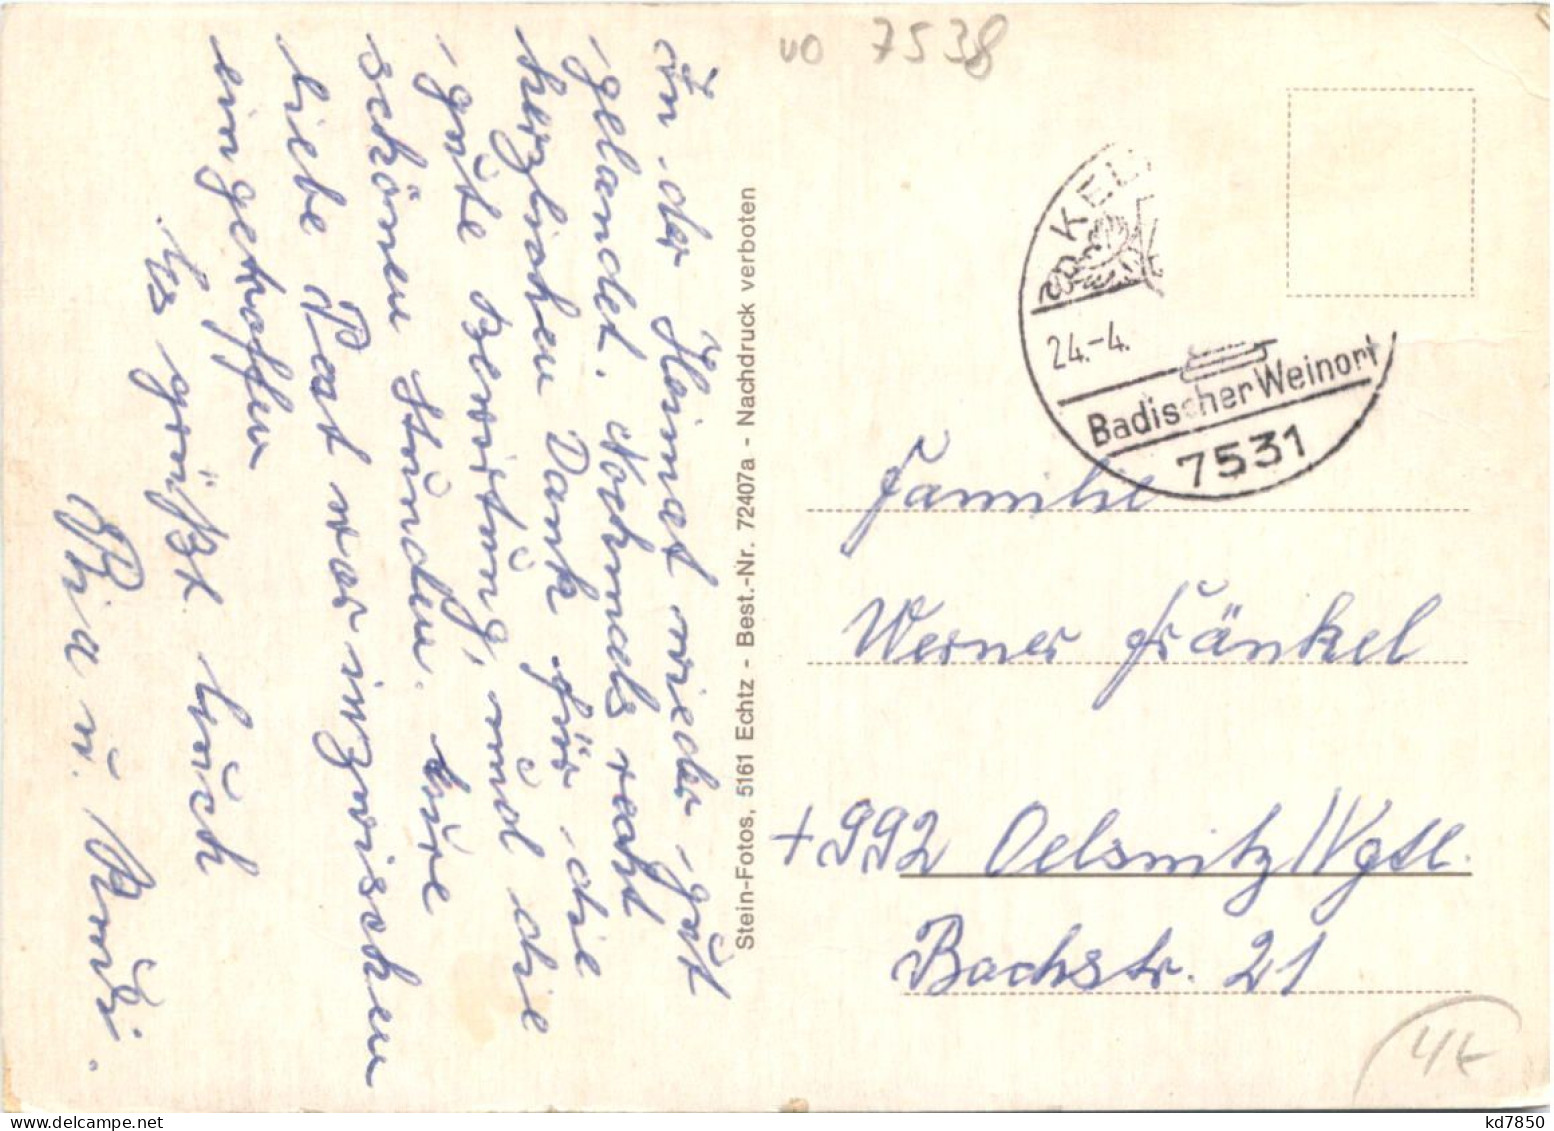 vo 7538
In der Heimat wieder gut
gelandet. Nochmals recht
herzlichen Dank für die
gute Bewirtung, und die
schönen Stunden. Eure
liebe Post war inzwischen
eingetroffen
Es grüßt Euch
Ria u. Rudi.
Stein-Fotos, 5161 Echtz - Best.-Nr. 72407a - Nachdruck verboten
KEL
24.-4.
Badischer Weinort
7531
Familie
Werner Fränkel
+992 Oelsnitz/Vgtl.
Bachstr. 21
kd7850